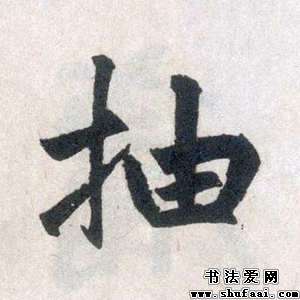 抽
书法爱网
www.shufaai.com